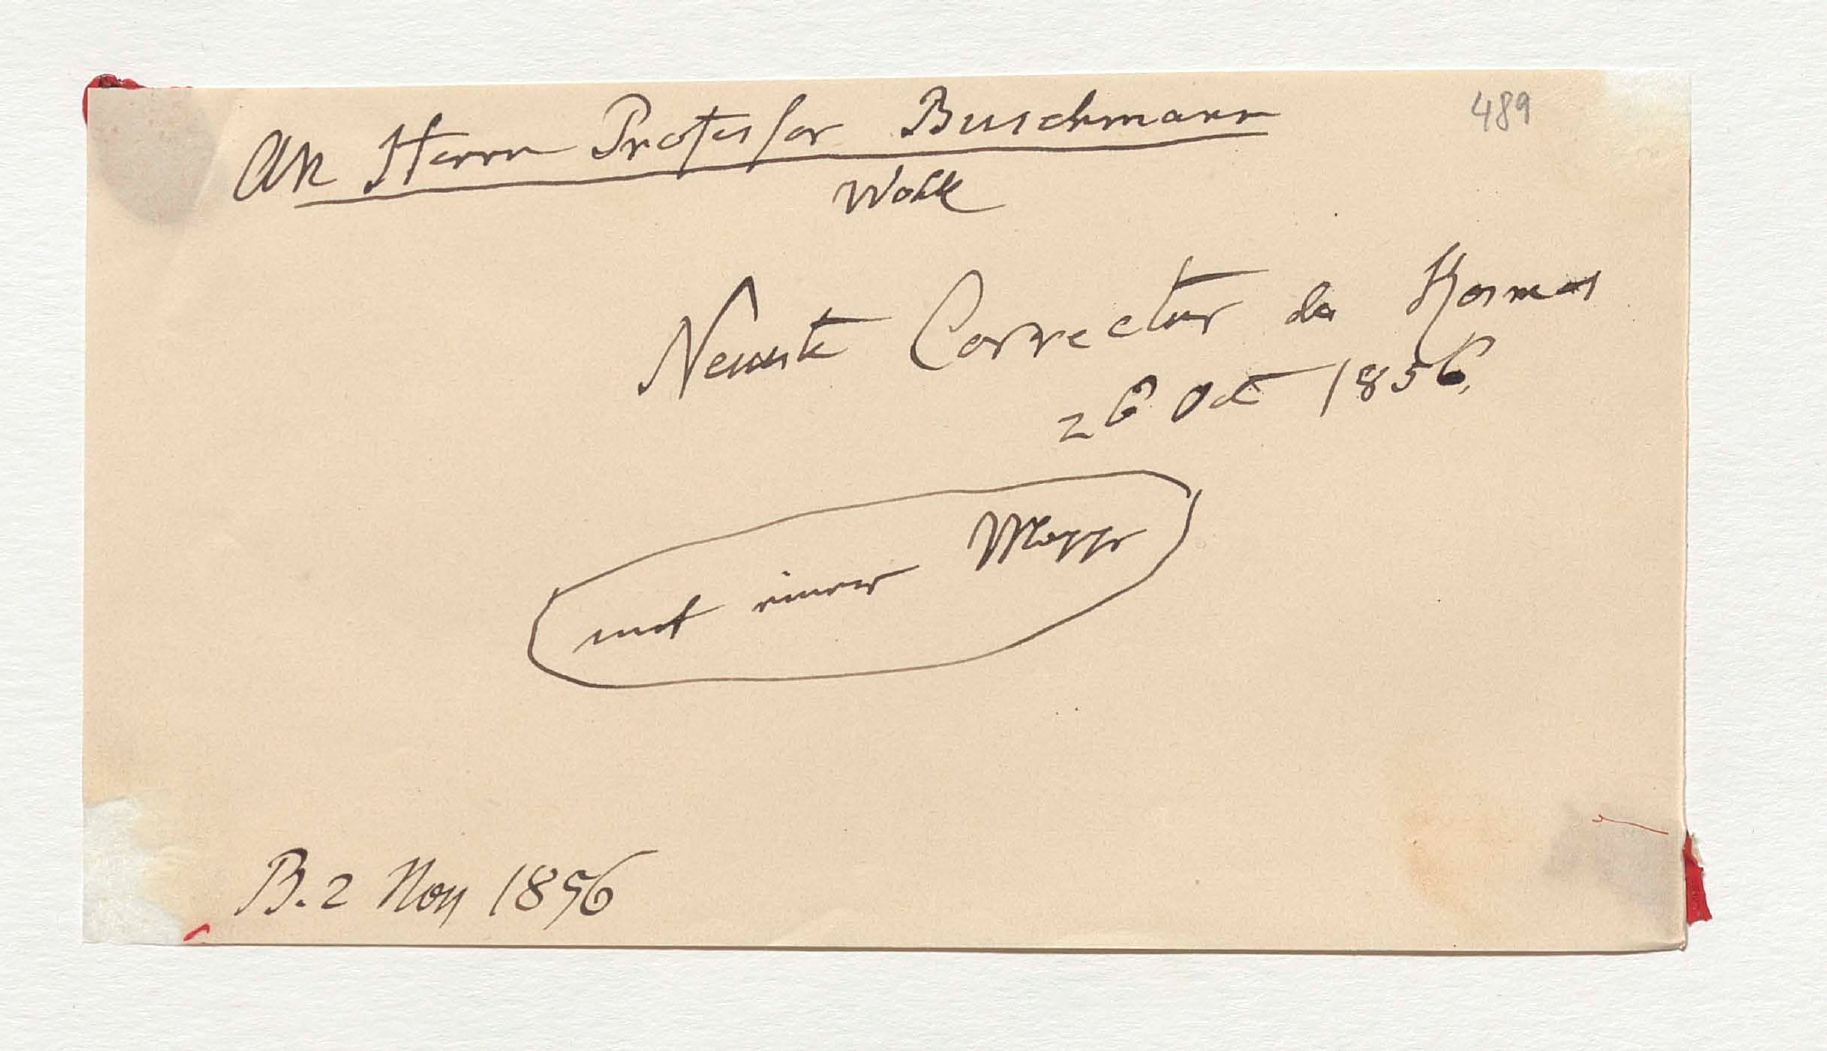 489
An Herrn Professor Buschmann
Wohl
Neuste Correctur des Kosmos
26 Oct 1856
mit einer Mappe
B. 2 Nov 1856